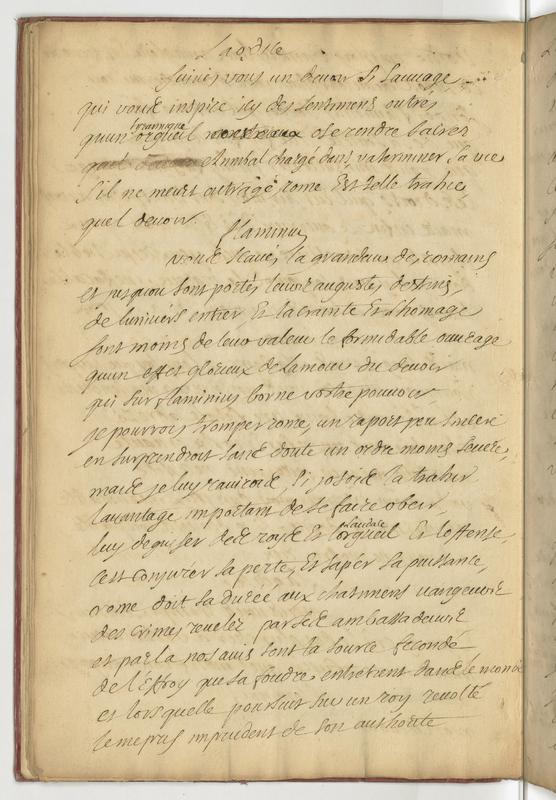 Laodice
Suives vous un devoir si sauvage
qui vous inspire icy des sentimens outrés
qu'un tyrannique orgueil ose rendre barbares
Annibal chargé d'ans va terminer sa vie
s'il ne meurt outragé rome est elle trahie
quel devoir.
flaminius
vous scaués la grandeur des romains
et jusquou sont portés leurs augustes destins
de l'univers entier Et la crainte Et l'homage
sont moins de leur valeur le formidable ouurage
quun effet glorieux de lamour du devoir
qui sur flaminius borne vostre pouvoir
je pourrois tromper rome, un raport peu sincere
en surprendroit sans doute un ordre moins seuere,
mais je luy rauirois, si josois la trahir
lauantage important de se faire obeir,
luy deguiser des roys Et l'orgueil laudace Et loffense,
cest conjurer sa perte, Et saper sa puissance,
rome doit sa durée aux chatimens vangeurs
des crimes reuelez par ses ambassadeurs
et par la nos auis sont la source feconde
de l'effroy que sa foudre entretient dans le monde
et lors quelle poursuit sur un roy reuolté
le mepris imprudent de son authorité